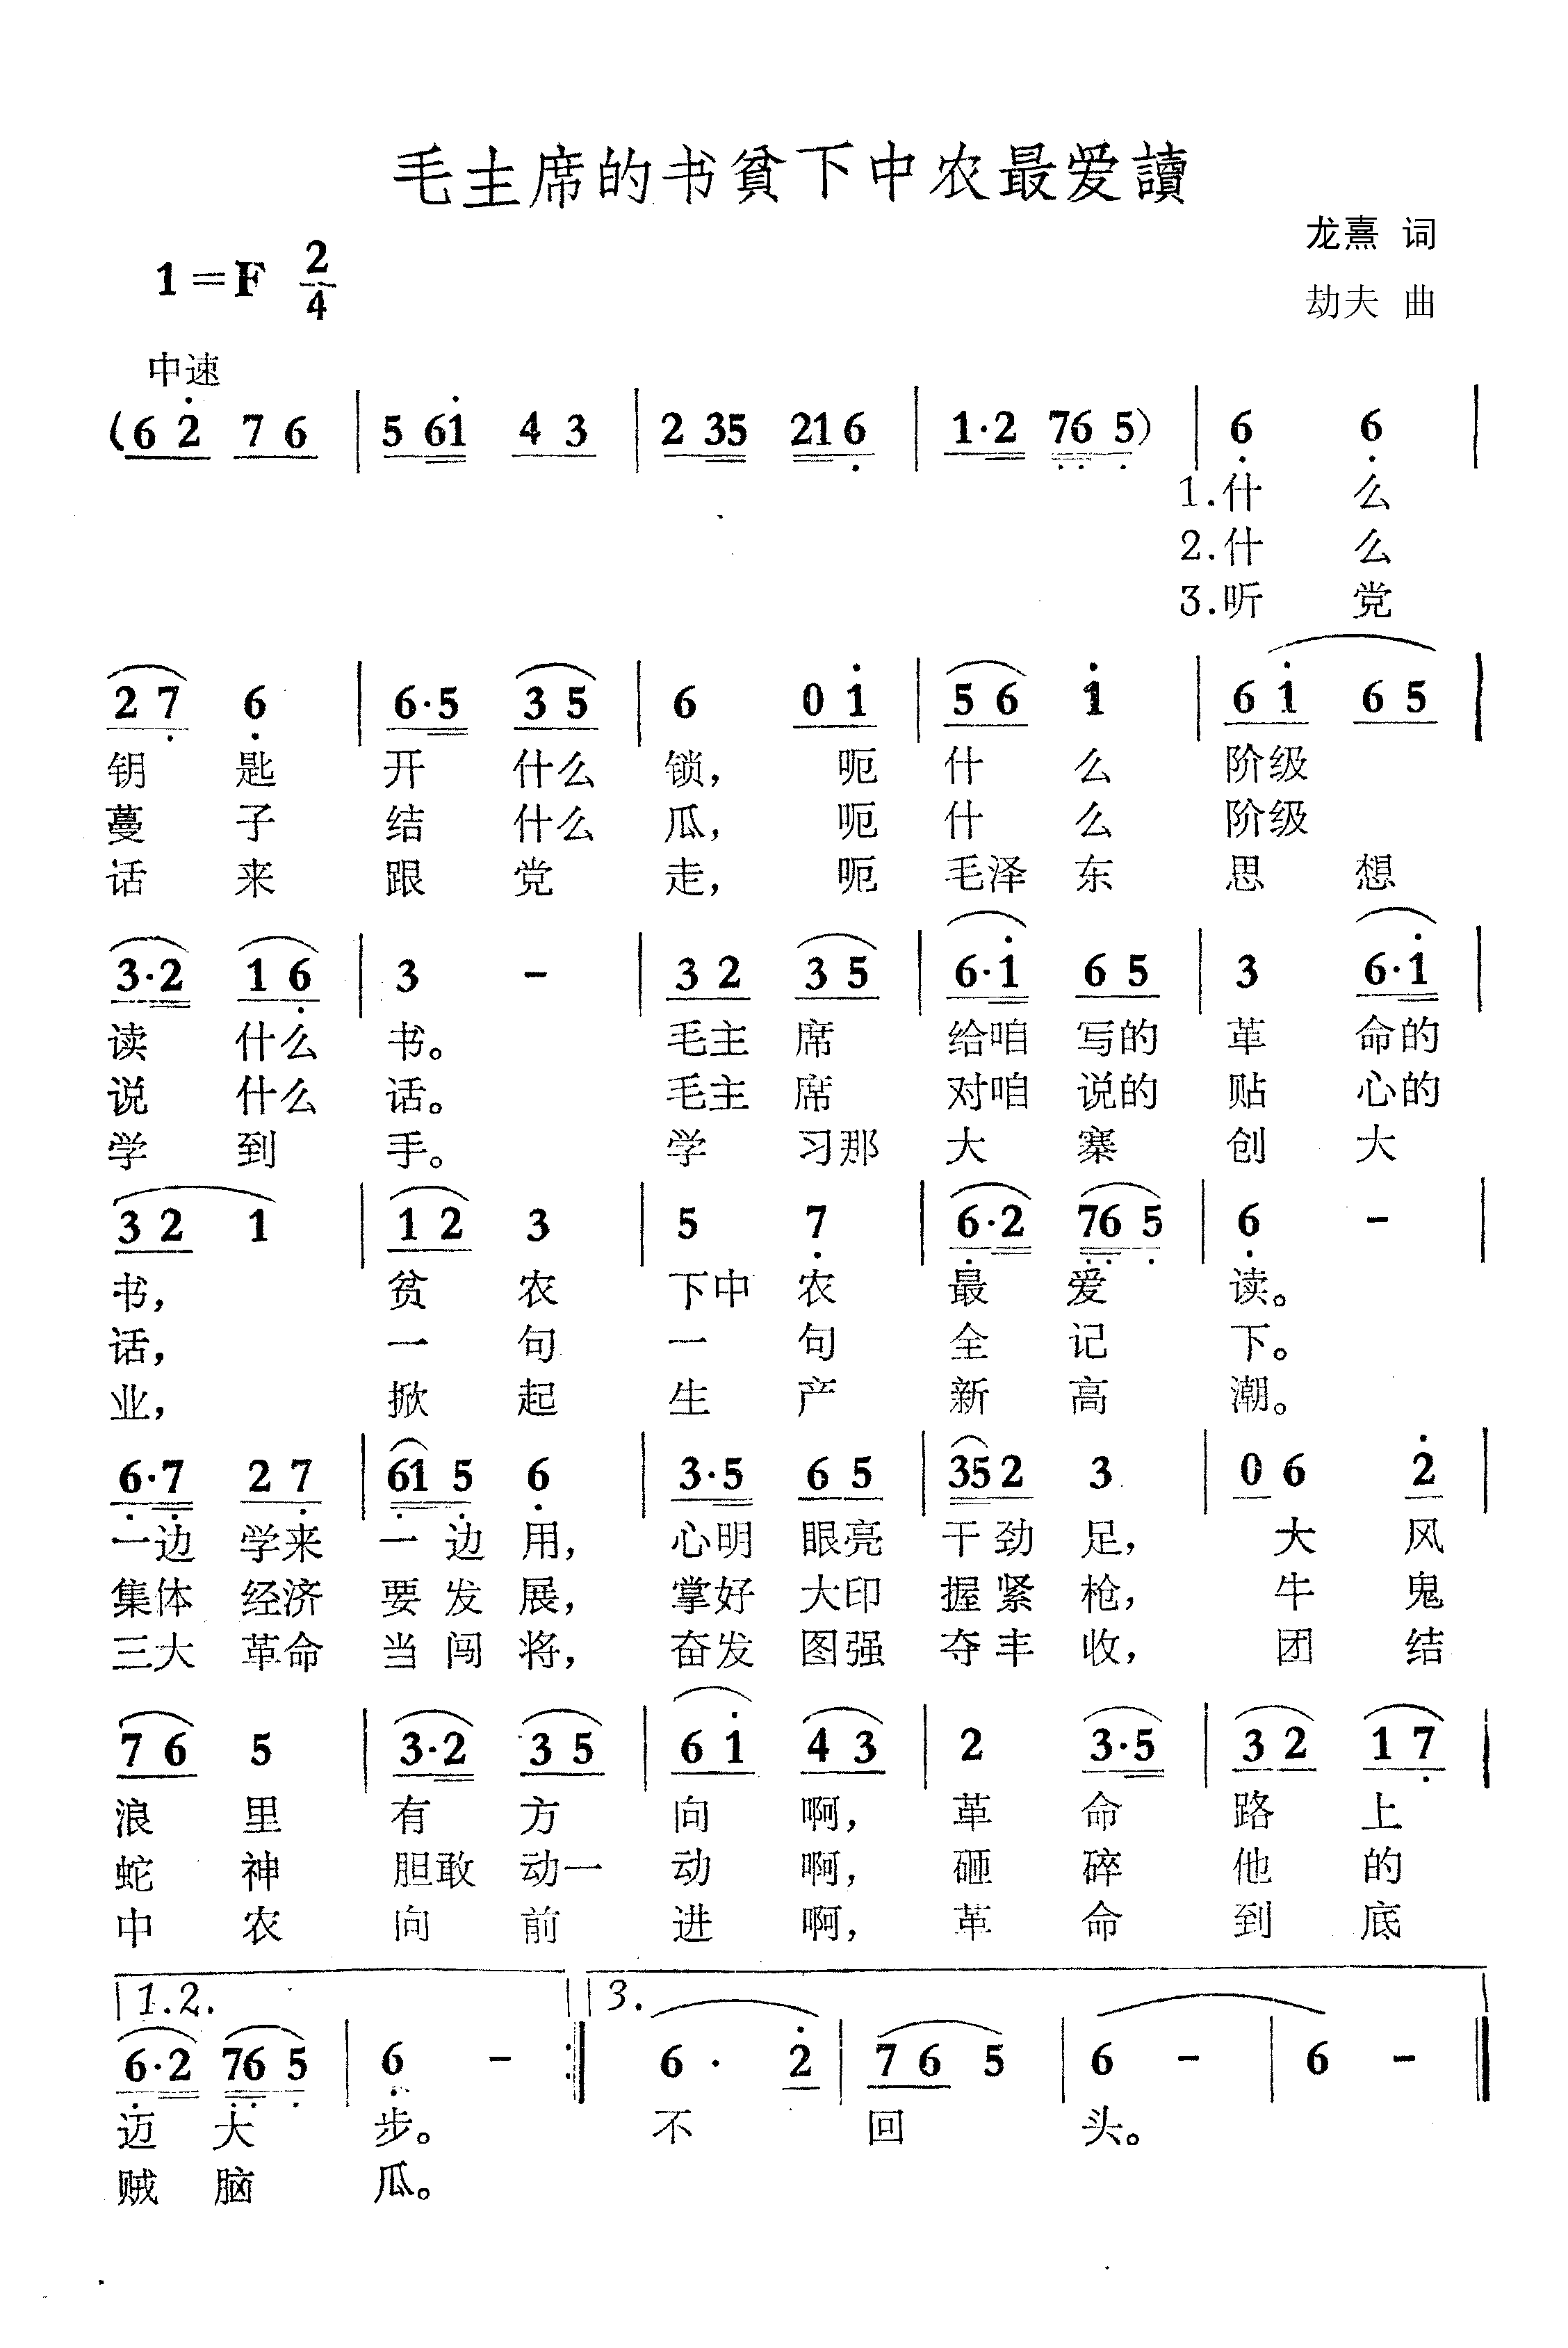 毛主席的书貧下中农最爱讀
龙熹 词
1=F 2/4
劫夫 曲
中速
(6 2̇ 7 6 | 5 61̇ 4 3 | 2 35 216̣ | 1·2 7̣6̣ 5̣) | 6̣ 6̣ |
1.什 么
2.什 么
3.听 党
2 7̣ 6̣ | 6·5 3 5 | 6 0 1̇ | 5 6 1̇ | 6 1̇ 6 5 |
钥 匙 开 什么 锁, 呃 什 么 阶级
蔓 子 结 什么 瓜, 呃 什 么 阶级
话 来 跟 党 走, 呃 毛泽 东 思 想
3·2 1 6̣ | 3 - | 3 2 3 5 | 6·1̇ 6 5 | 3 6·1̇ |
读 什么 书。 毛主 席 给咱 写的 革 命的
说 什么 话。 毛主 席 对咱 说的 贴 心的
学 到 手。 学 习那 大 寨 创 大
3 2 1 | 1 2 3 | 5 7̣ | 6̣·2 7̣6̣ 5̣ | 6̣ - |
书, 贫 农 下中 农 最 爱 读。
话, 一 句 一 句 全 记 下。
业, 掀 起 生 产 新 高 潮。
6̣·7̣ 2 7̣ | 6̣1 5̣ 6̣ | 3·5 6 5 | 352 3 | 0 6 2̇ |
一边 学来 一 边 用, 心明 眼亮 干劲 足, 大 风
集体 经济 要 发 展, 掌好 大印 握紧 枪, 牛 鬼
三大 革命 当 闯 将, 奋发 图强 夺丰 收, 团 结
7 6 5 | 3·2 3 5 | 6 1̇ 4 3 | 2 3·5 | 3 2 1 7̣ |
浪 里 有 方 向 啊, 革 命 路 上
蛇 神 胆敢 动一 动 啊, 砸 碎 他 的
中 农 向 前 进 啊, 革 命 到 底
1.2. 3.
6̣·2 7̣6̣ 5̣ | 6̣ - :| 6 · 2̇ | 7 6 5 | 6 - | 6 - ‖
迈 大 步。 不 回 头。
贼 脑 瓜。